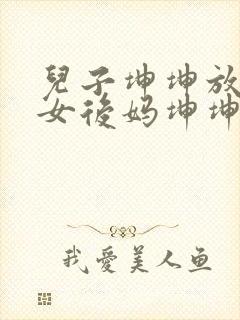 兒子坤坤放
女後妈坤坤
我愛美人鱼